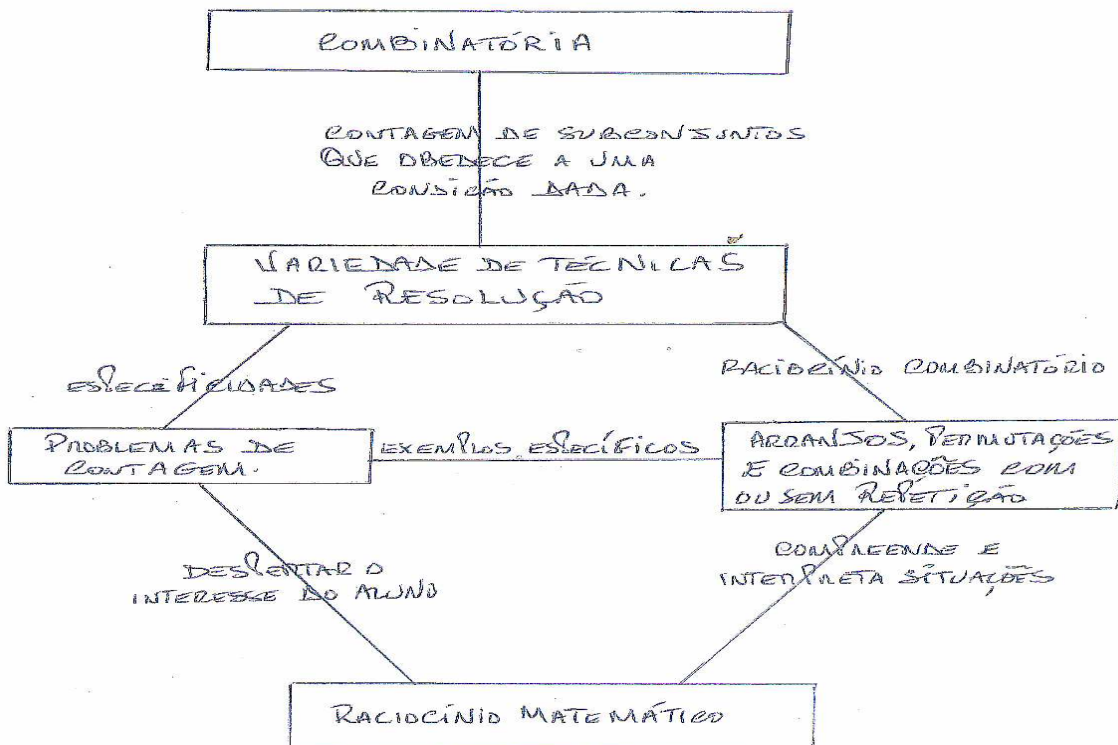 COMBINATÓRIA
CONTAGEM DE SUBCONJUNTOS
QUE OBEDECE A UMA
CONDIÇÃO DADA.
VARIEDADE DE TÉCNICAS
DE RESOLUÇÃO
ESPECÍFICIDADES
RACIOCÍNIO COMBINATÓRIO
PROBLEMAS DE
CONTAGEM.
EXEMPLOS ESPECÍFICOS
ARRANJOS, PERMUTAÇÕES
E COMBINAÇÕES COM
OU SEM REPETIÇÃO
DESPERTAR O
INTERESSE DO ALUNO
COMPREENDE E
INTERPRETA SITUAÇÕES
RACIOCÍNIO MATEMÁTICO